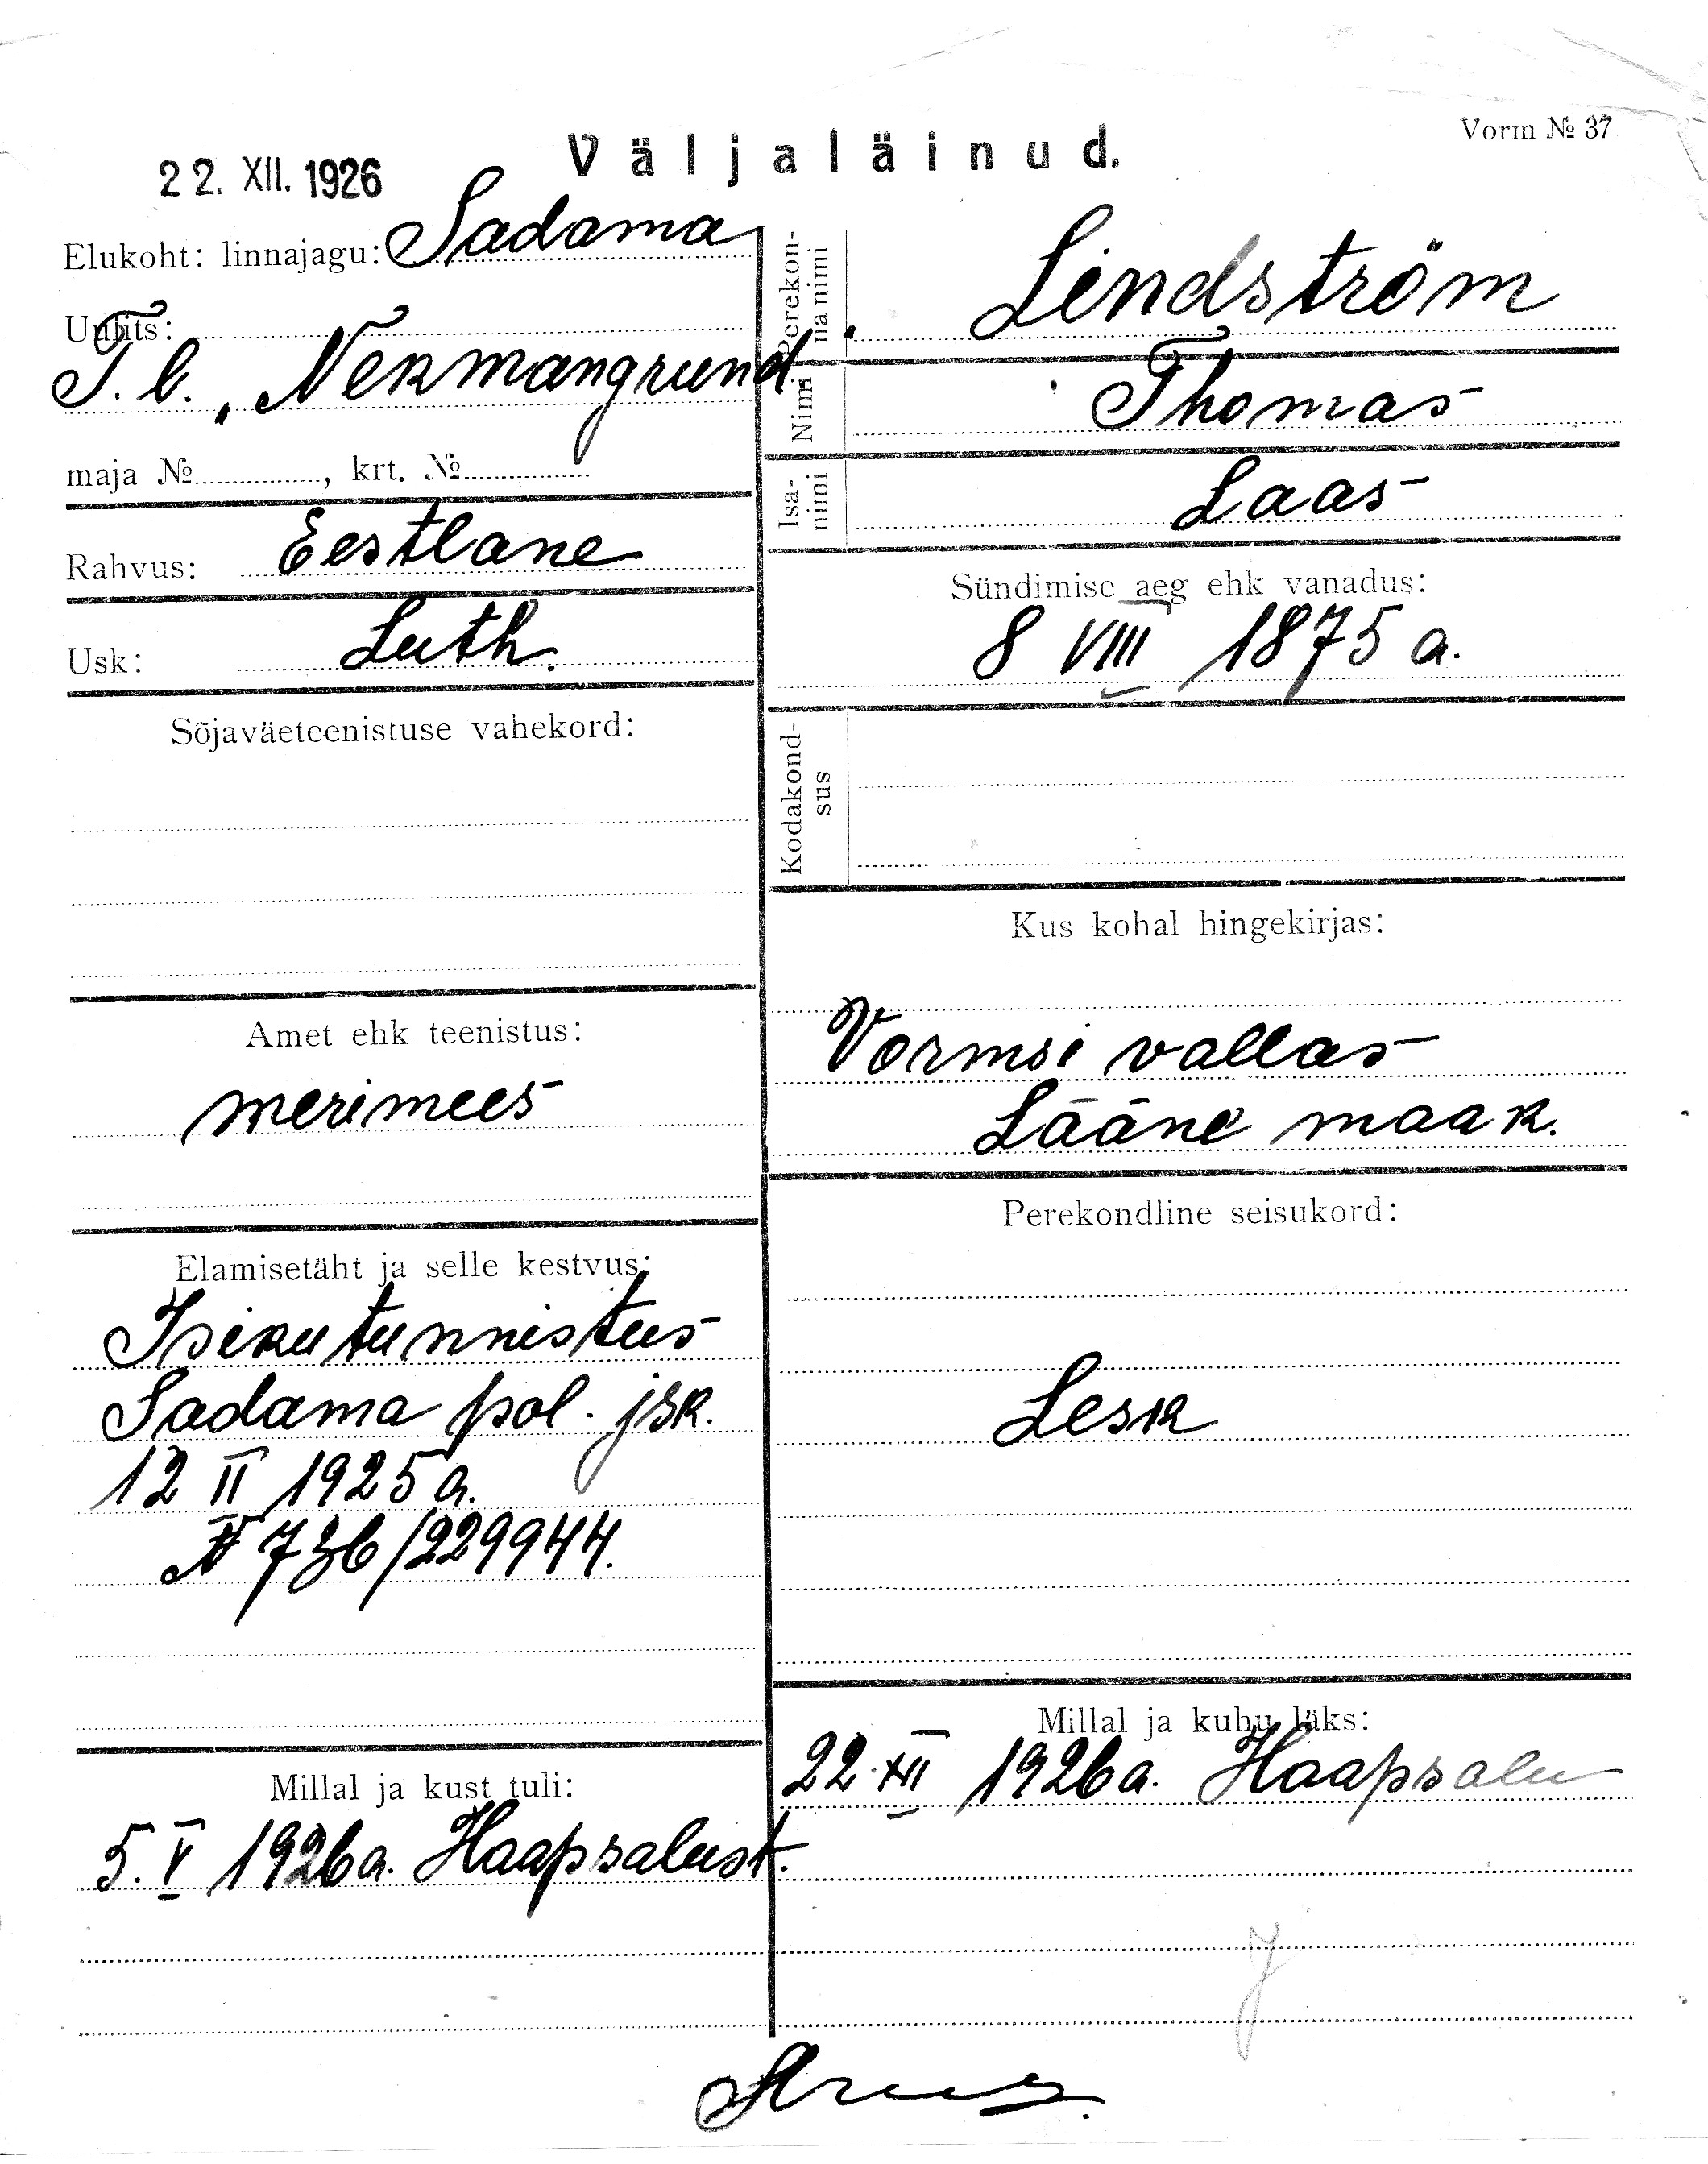 Vorm № 37
Väljaläinud.
22. XII. 1926
Elukoht: linnajagu: Sadama
Uulits:
T. b. "Nekmangrund"
maja № , krt. №
Rahvus: Eestlane
Usk: Luth.
Sõjaväeteenistuse vahekord:
Amet ehk teenistus:
merimees
Elamisetäht ja selle kestvus:
Isikutunnistus
Sadama pol. jsk.
12 II 1925 a.
№ 736/229944.
Millal ja kust tuli:
5. V 1926 a. Haapsalust.
Perekonna nimi Lindström
Nimi Thomas
Isa-nimi Laas
Sündimise aeg ehk vanadus:
8 VIII 1875 a.
Kodakond-
sus
Kus kohal hingekirjas:
Vormsi vallas
Lääne maak.
Perekondline seisukord:
Lesk
Millal ja kuhu läks:
22. XII 1926 a. Haapsalu